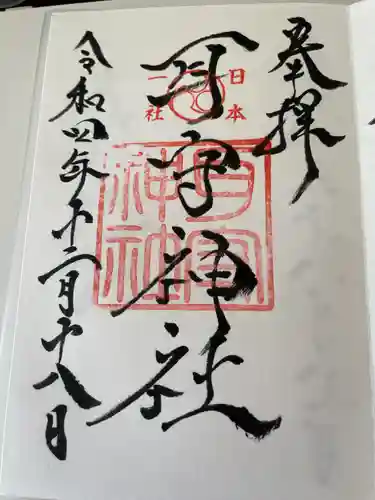 奉拝
日本
一社
耳守神社
耳守
神社
令和四年十二月十八日